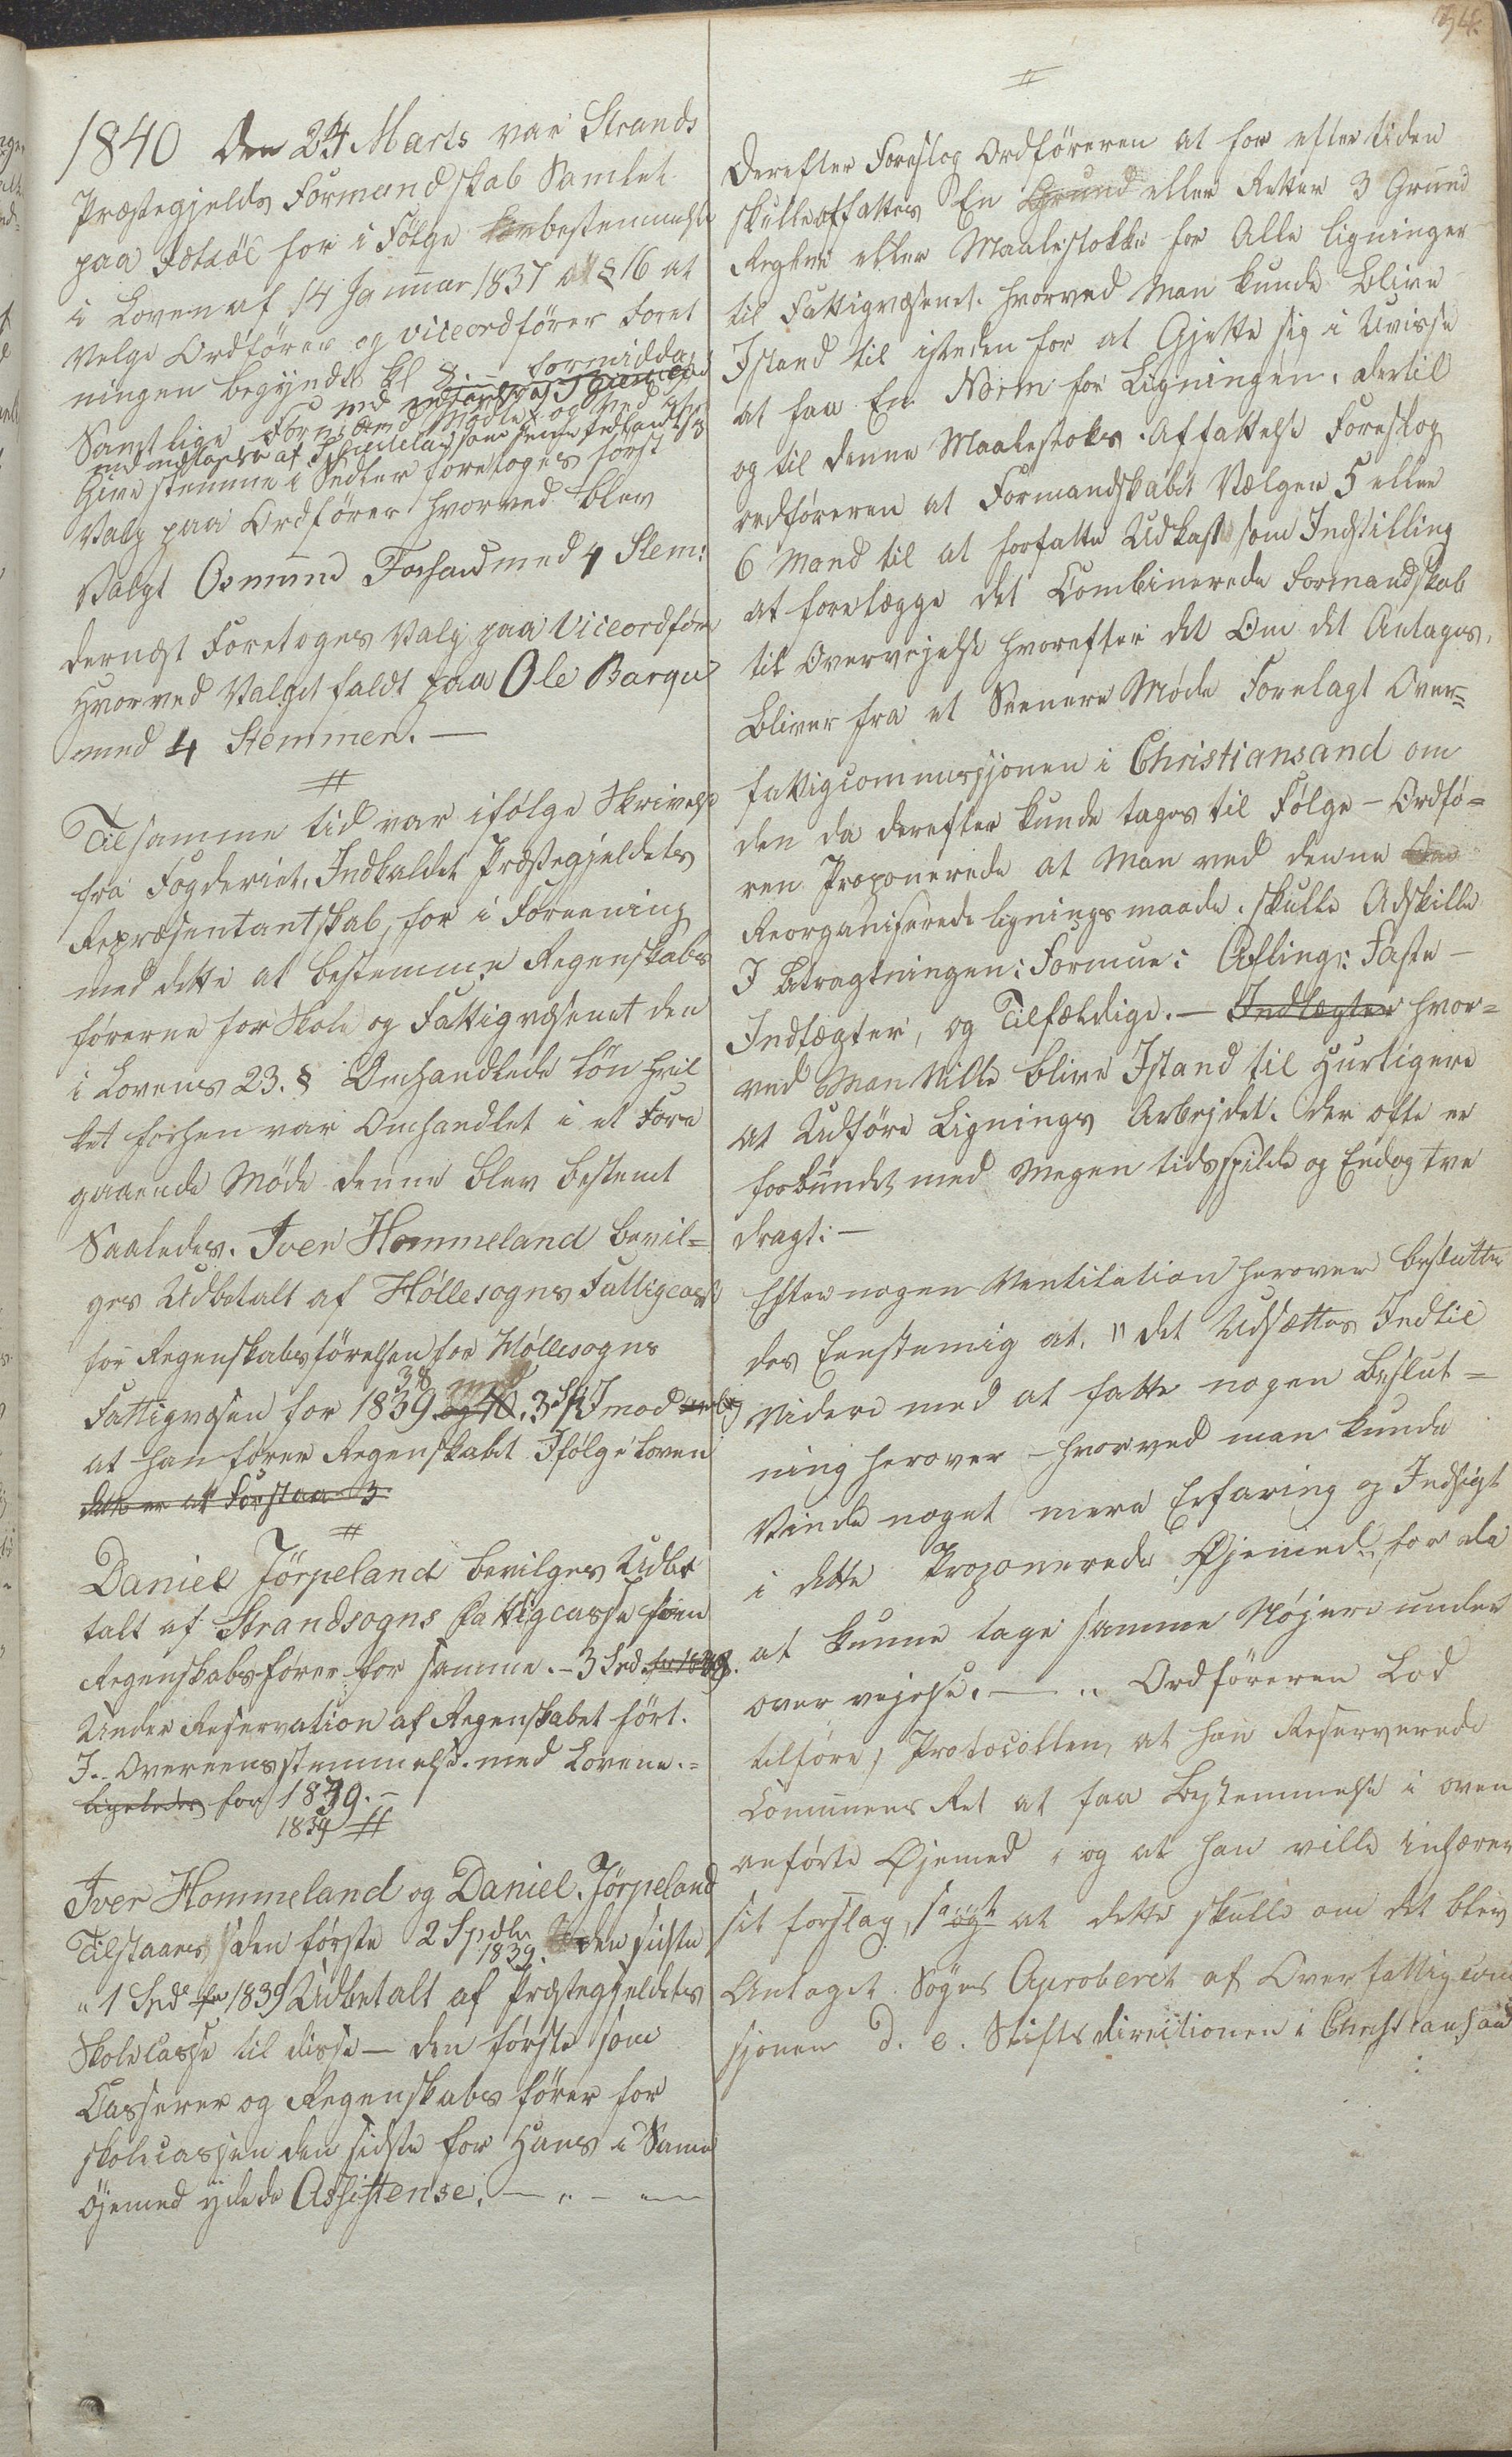 94.
1840 Den 24 Marts var Strands
Præstegjelds Formandskab Samlet
paa Fetsöe for i Følge bestemmelse
i Loven af 14 Januar 1837 § 16 at
Velge Ordfører og viceordfører Foret
ningen begyndte Kl 8 formidda
Samtlige Formænd mødte og ved at
med undtagelse af
Give stemme i Sedler foretoges først
Valg paa Ordfører hvorved blev
Valgt Osmund Fossan med 4 Stem:
dernæst Foretoges Valg paa Viceordfører
hvorved Valget faldt paa Ole Barque
med 4 Stemmer. —
#
Tilsamme tid var ifølge Skrivelse
fra Fogderiet, Indkaldet Præstegjeldets
Repræsentantskab, for i Foreening
med dette at bestemme Regenskabs
førerne for Skole og Fattigvæsenet den
i Lovens 23. § Omhandlede Løn hvil
ket forhen var Omhandlet i et Fore
gaaende Møde denne blev bestemt
Saaledes. Iver Hommeland bevil=
ges Udbetalt af Höllesogns Fattigcasse
for Regenskabsförelsen for Höllesogns
38
Fattigvæsen for 1839 og 40. 3 Sp Imod
at han fører Regenskabet Ifølge Loven
dette er at Forstaa 3
#
Daniel Jörpeland bevilges Udbe
talt af Strandsogns Fattigcasse som
Regenskabsfører for samme. - 3 Spd for 1838.
Under Reservation af Regenskabet ført.
I Overeensstemmelse med Lovene. =
ligeledes for 1839. -
1839 #
Iver Hommeland og Daniel Jörpeland
Tilstaaes, den første 2 Spdlr den sidste
1839.
" 1 Spd for 1839 Udbetalt af Præstegjeldets
Skolecasse til disse — den første som
Casserer og Regenskabs fører for
skolecassen den sidste for Hans i Same
Öjemed ydede Assistense. — " — "
#
Derefter Foreslog Ordføreren at for eftertiden
skulle affattes En Grund eller Retter 3 Grund
Reglene eller Maalestokke for Alle ligninger
til Fattigvæsenet. hvorved Man kunde blive
Istand til isteden for at Gjette sig i Uvisse
at faa En Norm for Ligningen. dertil
og til denne Maalestoks Affattelse Foreslog
ordføreren at Formandskabet Vælger 5 eller
6 Mand til at forfatte Udkast som Indstilling
at forelægge det Combinerede Formandskab
til Overvejelse hvorefter det Om det Antages,
bliver fra et Senere Møde Forelagt Over=
fattigcommissjonen i Christiansand om
den da derefter kunde tages til Følge - Ordfö=
ren Proponerede at Man ved denne
Reorganiserede ligningsmaade. skulle Adskille
I Betragtningen: Formue: Afling: Faste —
Indtægter, og Tilfældige. — Indtægter hvor=
ved Man Ville blive Istand til hurtigere
at Udföre Lignings Arbejdet. der ofte er
forbundet med Megen tidsspilde og Endog tve
dragt: —
Efter nogen Ventilation herover beslutte
des Eenstemig at. " det Udsættes Indtil
Videre med at fatte nogen beslut=
ning herover - hvorved man kunde
Vinde noget mere Erfaring og Indsigt
i dette Proponerede Öjemed, for da
at kunne tage samme Nöjere under
over vejelse. — " Ordføreren Lod
tilføre, Protocollen, at han Reserverede
Comunens Ret at faa bestemmelse i oven
anførte Öjemed, og at han ville
sit forslag, at dette skulle om det blev
Antaget Søges Aproberet af Overfattigcom
sjonen d. e. Stiftsdirectionen i Christiansan